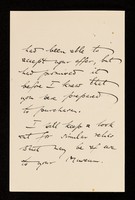 had been able to
accept your offer, but
had promised it
before I knew that
you was prepared
to purchase.
I will keep a look
out for similar relics
which may be of use
to your Museum.